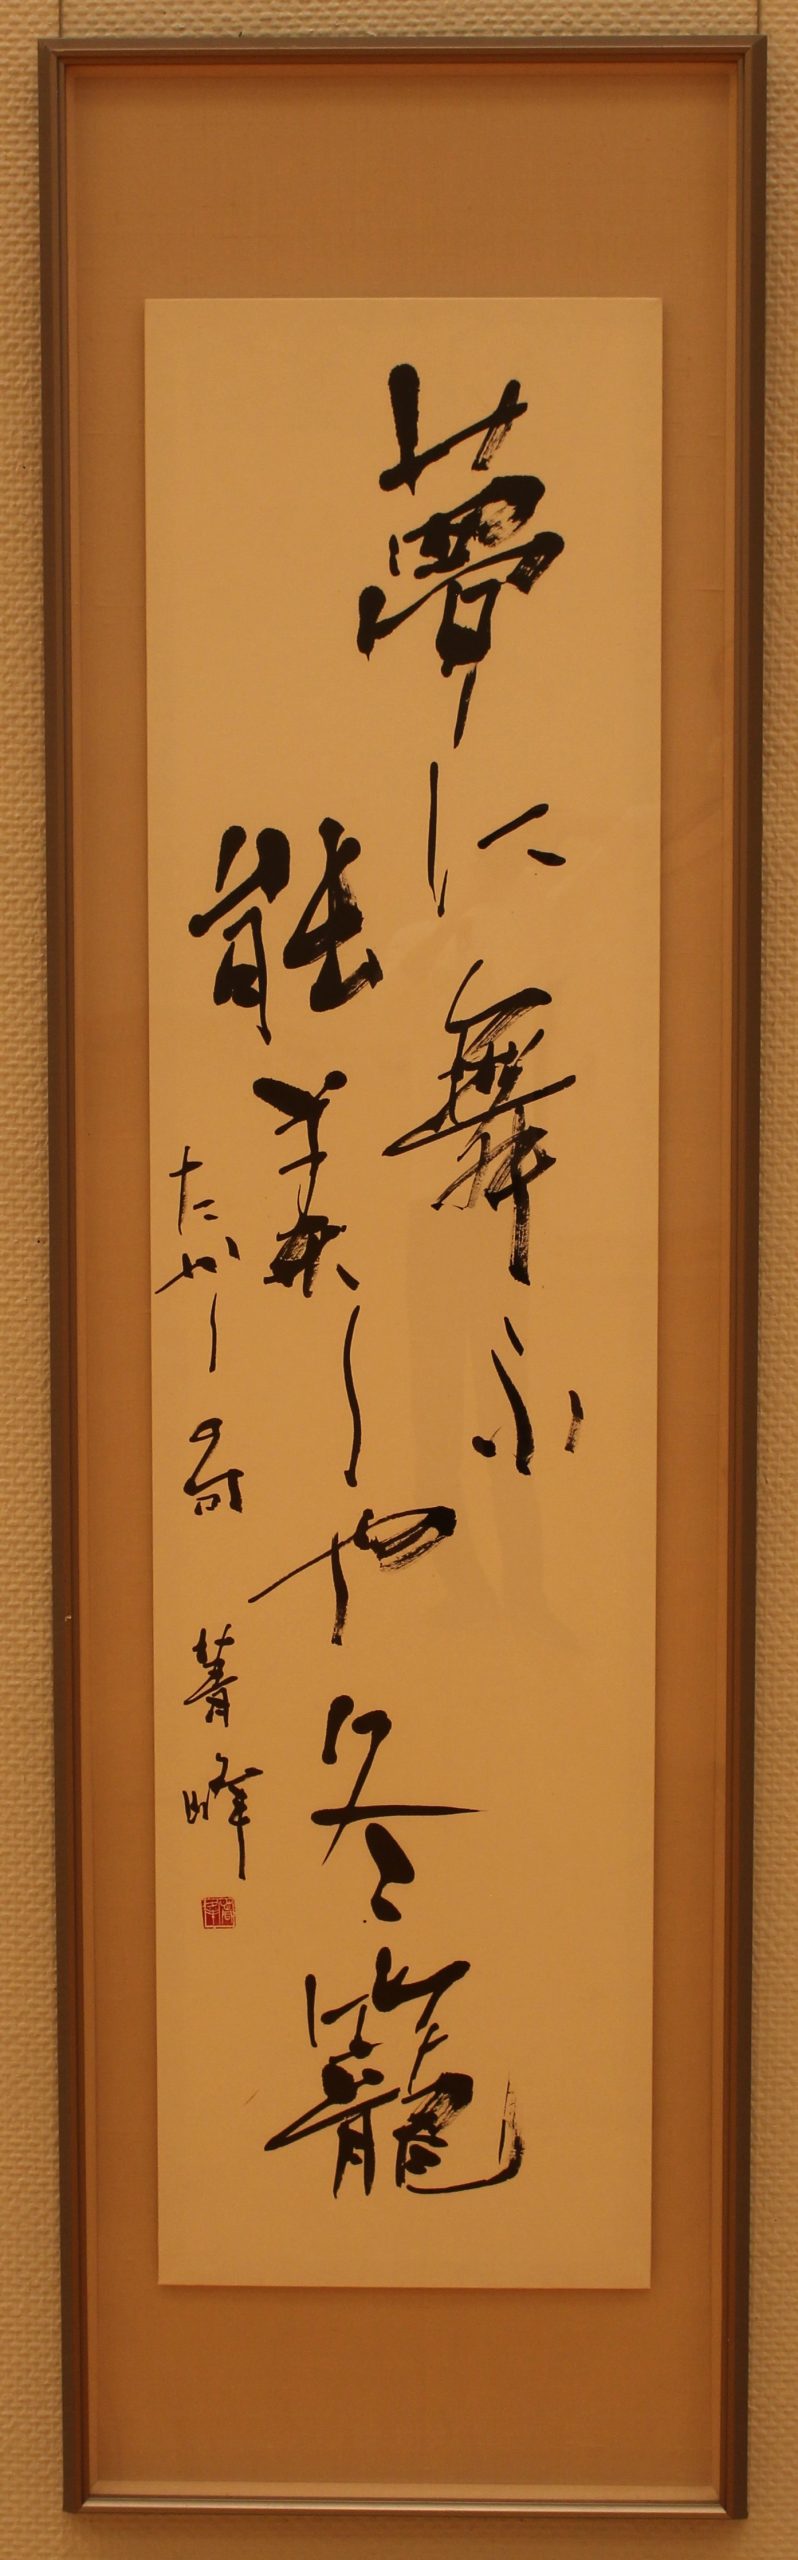 夢に舞ふ
能美しや冬籠
たかし句 菁峰